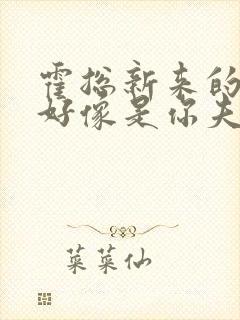 霍总新来的
好像是你夫
菜菜仙